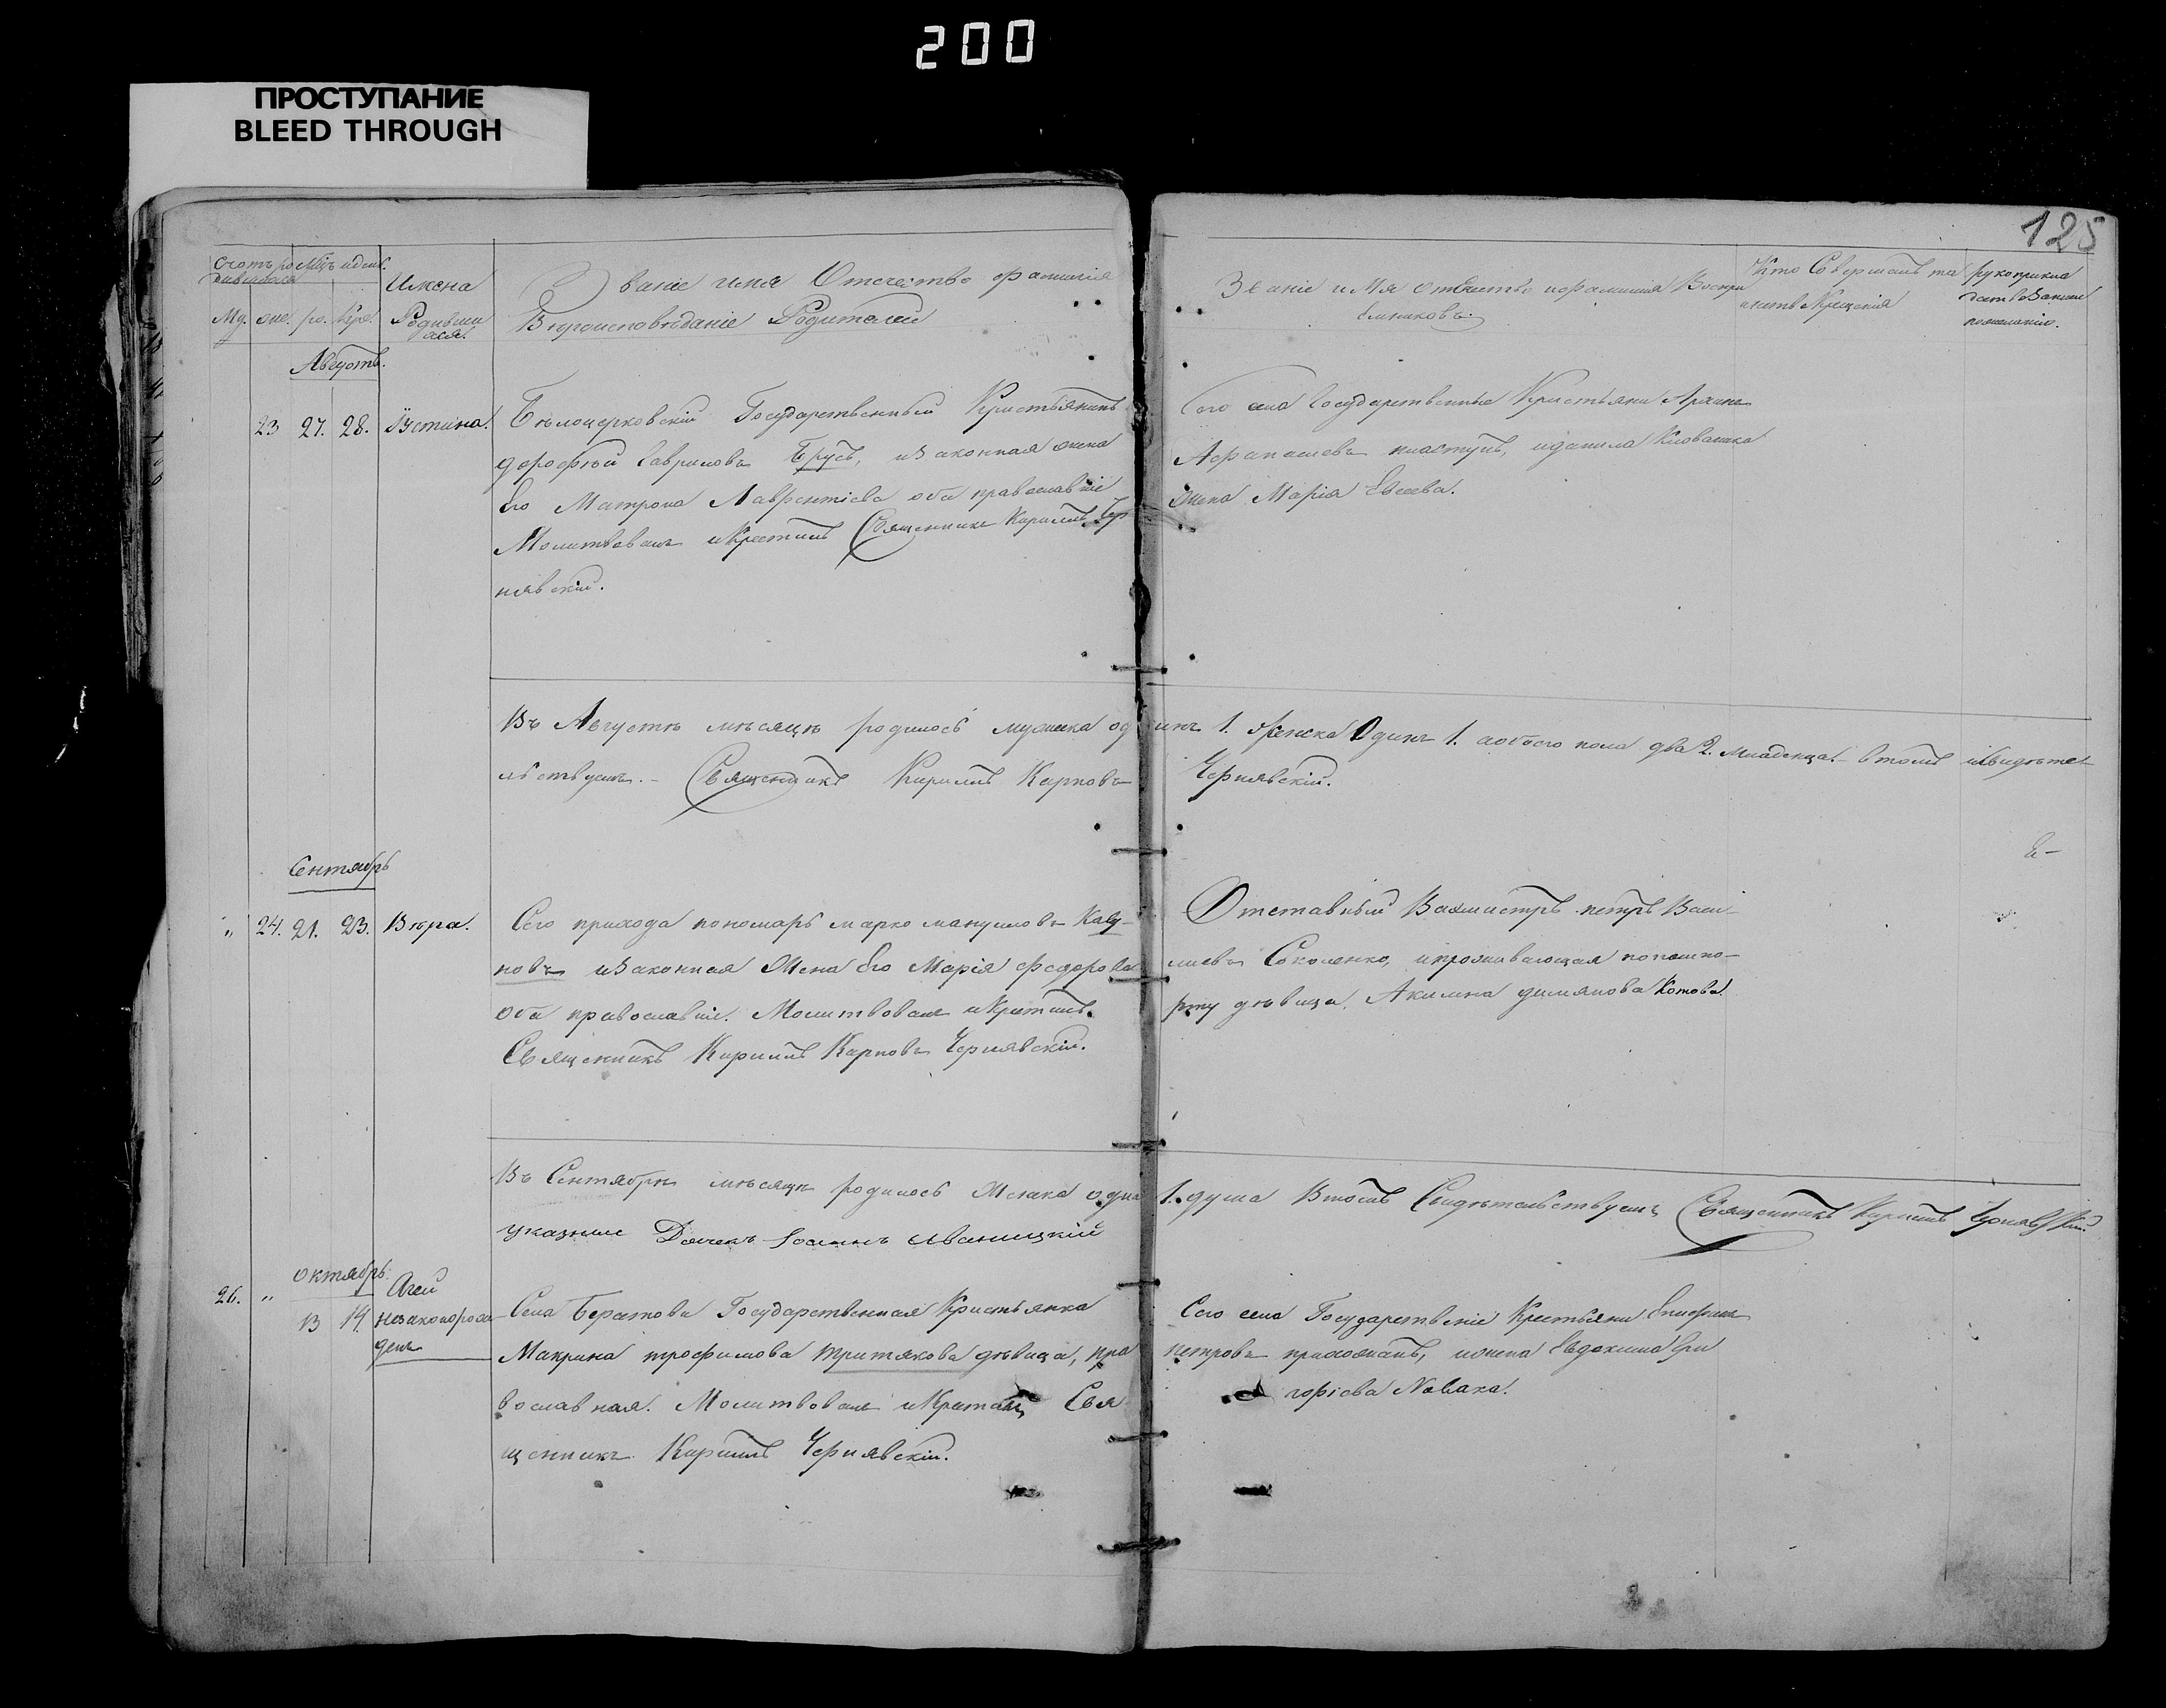 200
ПРОСТУПАНИЕ
BLEED THROUGH
125
Счотъ ро Мцъ и день.
Му. же. ро. кре.
Имена
Родивши
хся.
Званіе имя Отечество фамилія
Вѣроисповѣданіе Родителей
Званіе и Мя отечество и фамилия Воспри
емниковъ.
Кто Совершалъ та
инство Крещенія
рукоприкла
дство
Августъ.
23 27. 28. Устина.
Бѣлоцерковскій Государственный Крестьянинъ
дорофѣй Гавриловъ Брусъ, и законная жена
Его Матрона Лаврентіева оба православніе
Молитвовалъ и Крестилъ Священникъ Кирилъ Чер
нявскій.
Сего села Государственные Крестьяни
пластунъ, и данила
жена Марія Евсеева.
Въ Августѣ мѣсяцѣ родилось мужеска одинъ 1. женска Одинъ 1. а обоего пола два 2. младенца. в томъ и свидѣте
льствуемъ. Священникъ Кирилъ Карповъ Чернявскій.
Сентябрь
„ 24. 21. 23. Вѣра.
Сего прихода пономарь марко мануиловъ Кау-
новъ и законная Жена Его Марія федорова
оба православніе. Молитвовалъ и Крестилъ.
Священникъ Кирилъ Карповъ Чернявскій.
Отставный Вахмистръ петръ Васи-
лиевъ Соколенко, и проживающая по пашпо-
рту дѣвица Акилина димянова Котова.
Въ Сентябрѣ мѣсяцѣ родилось Женска одна 1. душа В томъ Свидѣтельствуемъ Священникъ Кирилъ Чернявскій.
указние Дьячекъ Іоаннъ Иваницкій
октябрь.
26. „ 13 14. Агей
незаконорож
денъ
Села Государственная Кристьянка
Макрина трофимова третякова дѣвица, пра
вославная. Молитвовалъ и Крестилъ Свя
щенникъ Кирилъ Чернявскій.
Сего села Государственіе Крестьяни Епифанъ
петровъ и жена Евдокима Гри
горіева Новака.